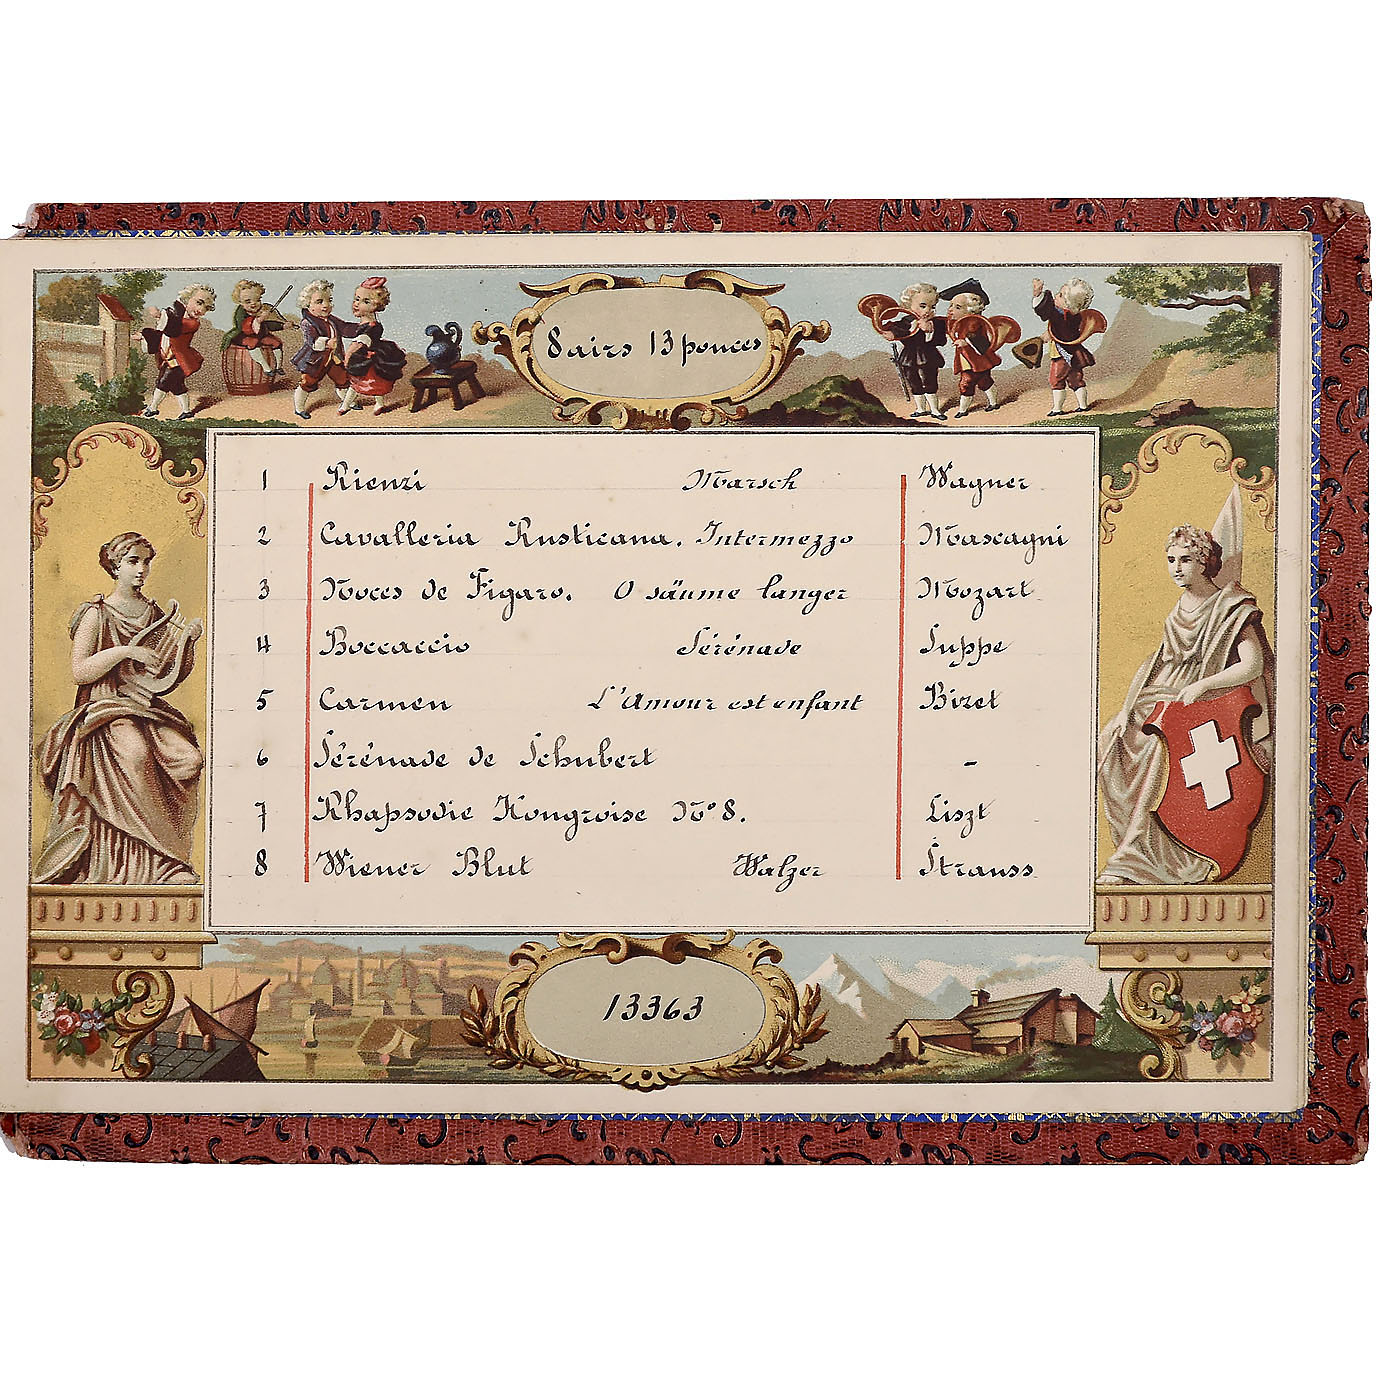 8 airs 13 pouces
1 Rienzi Marsch Wagner
2 Cavalleria Rusticana. Intermezzo Mascagni
3 Noces de Figaro. O säume langer Mozart
4 Boccaccio Sérénade Suppe
5 Carmen L'Amour est enfant Bizet
6 Sérénade de Schubert -
7 Rhapsodie Hongroise No 8. Liszt
8 Wiener Blut Walzer Strauss
13363